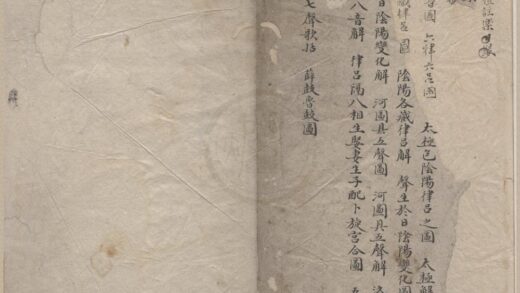 音圖 六律六呂圖 太極包陰陽律呂之圖 太極解
藏律呂圖 陰陽各藏律呂解 聲生於日陰陽變化圖
日陰陽變化解 河圖具五聲圖 河圖具五聲解
八音解 律呂陽八相生娶妻生子配卜旋宮合圖 五
七聲歌括 薛鼓魯鼓圖